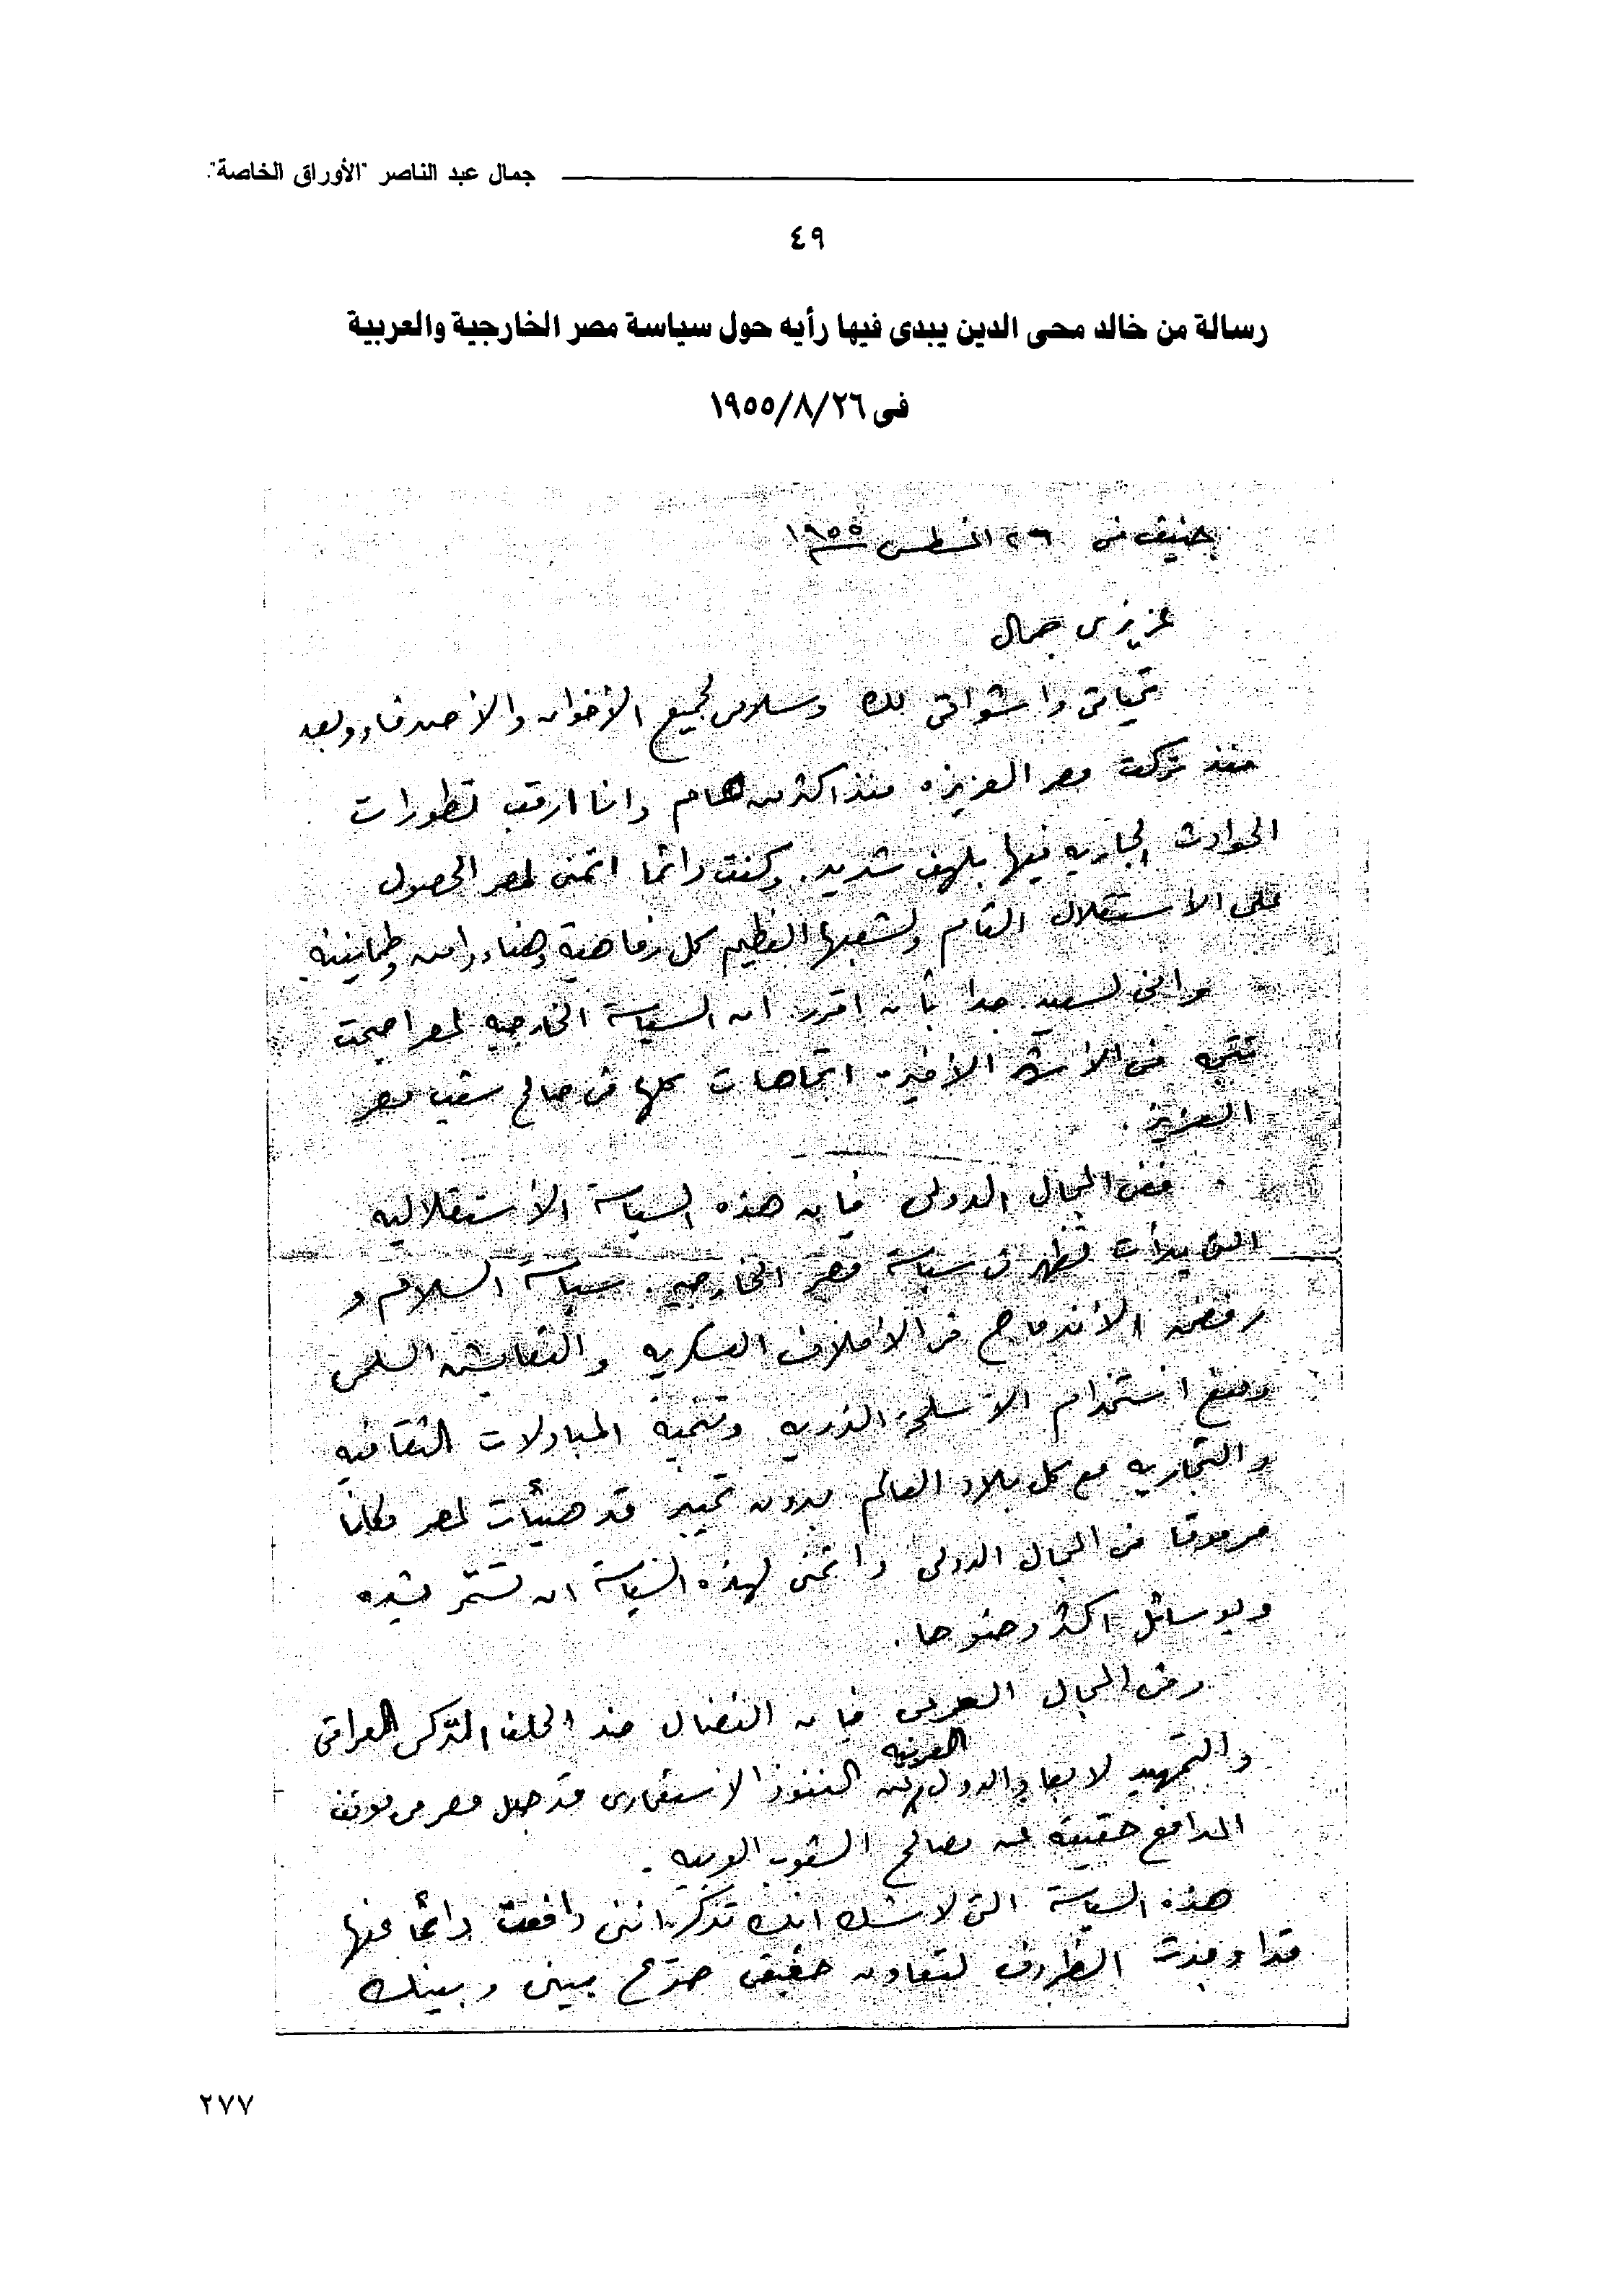 جمال عبد الناصر "الأوراق الخاصة".
٤٩
رسالة من خالد محى الدين يبدى فيها رأيه حول سياسة مصر الخارجية والعربية
فى ١٩٥٥/٨/٢٦
جنيف فى ٢٦ اغسطس ١٩٥٥
عزيزى جمال
تحياتى واشواقى لك وسلامى لجميع الأخوان والأصدقاء وبعد
منذ تركت مصر العزيزه منذ اكثر من عام وانا ارقب تطورات
الحوادث الجاريه فيها بلهف شديد. وكنت دائما اتمنى لمصر الحصول
على الأستقلال التام ولشعبها العظيم كل رفاهية وهناء وامن وطمأنينه.
وانى لسعيد جدا بأن اقرر ان السياسة الخارجيه لمصر اصبحت
تتجه فى الأشهر الأخيره اتجاهات كلها فى صالح شعب مصر
العزيز.
ففى المجال الدولى فإن هذه السياسة الأستقلاليه
التى بدأت تظهر فى سياسة مصر الخارجيه. سياسة السلام و
رفض الأندماج فى الأحلاف العسكريه والتعايش السلمى
ومنع استخدام الأسلحة الذريه وتنمية المبادلات الثقافيه
والتجاريه مع كل بلاد العالم بدون تمييز قد هيأت لمصر مكانا
مرموقا فى المجال الدولى واتمنى لهذه السياسة ان تستمر بشده
وبوسائل اكثر وضوحا.
وفى المجال العربى فإن النضال ضد الحلف التركى العراقى
والتمهيد لابعاد الدول العربيه عن النفوذ الأستعمارى قد جعل مصر فى موقف
المدافع حقيقة عن مصالح الشعوب العربيه.
هذه السياسة التى لاشك انك تذكر اننى دافعت دائما عنها
قد اوجدت الظروف لتعاون حقيقى صريح بينى وبينك
٢٧٧